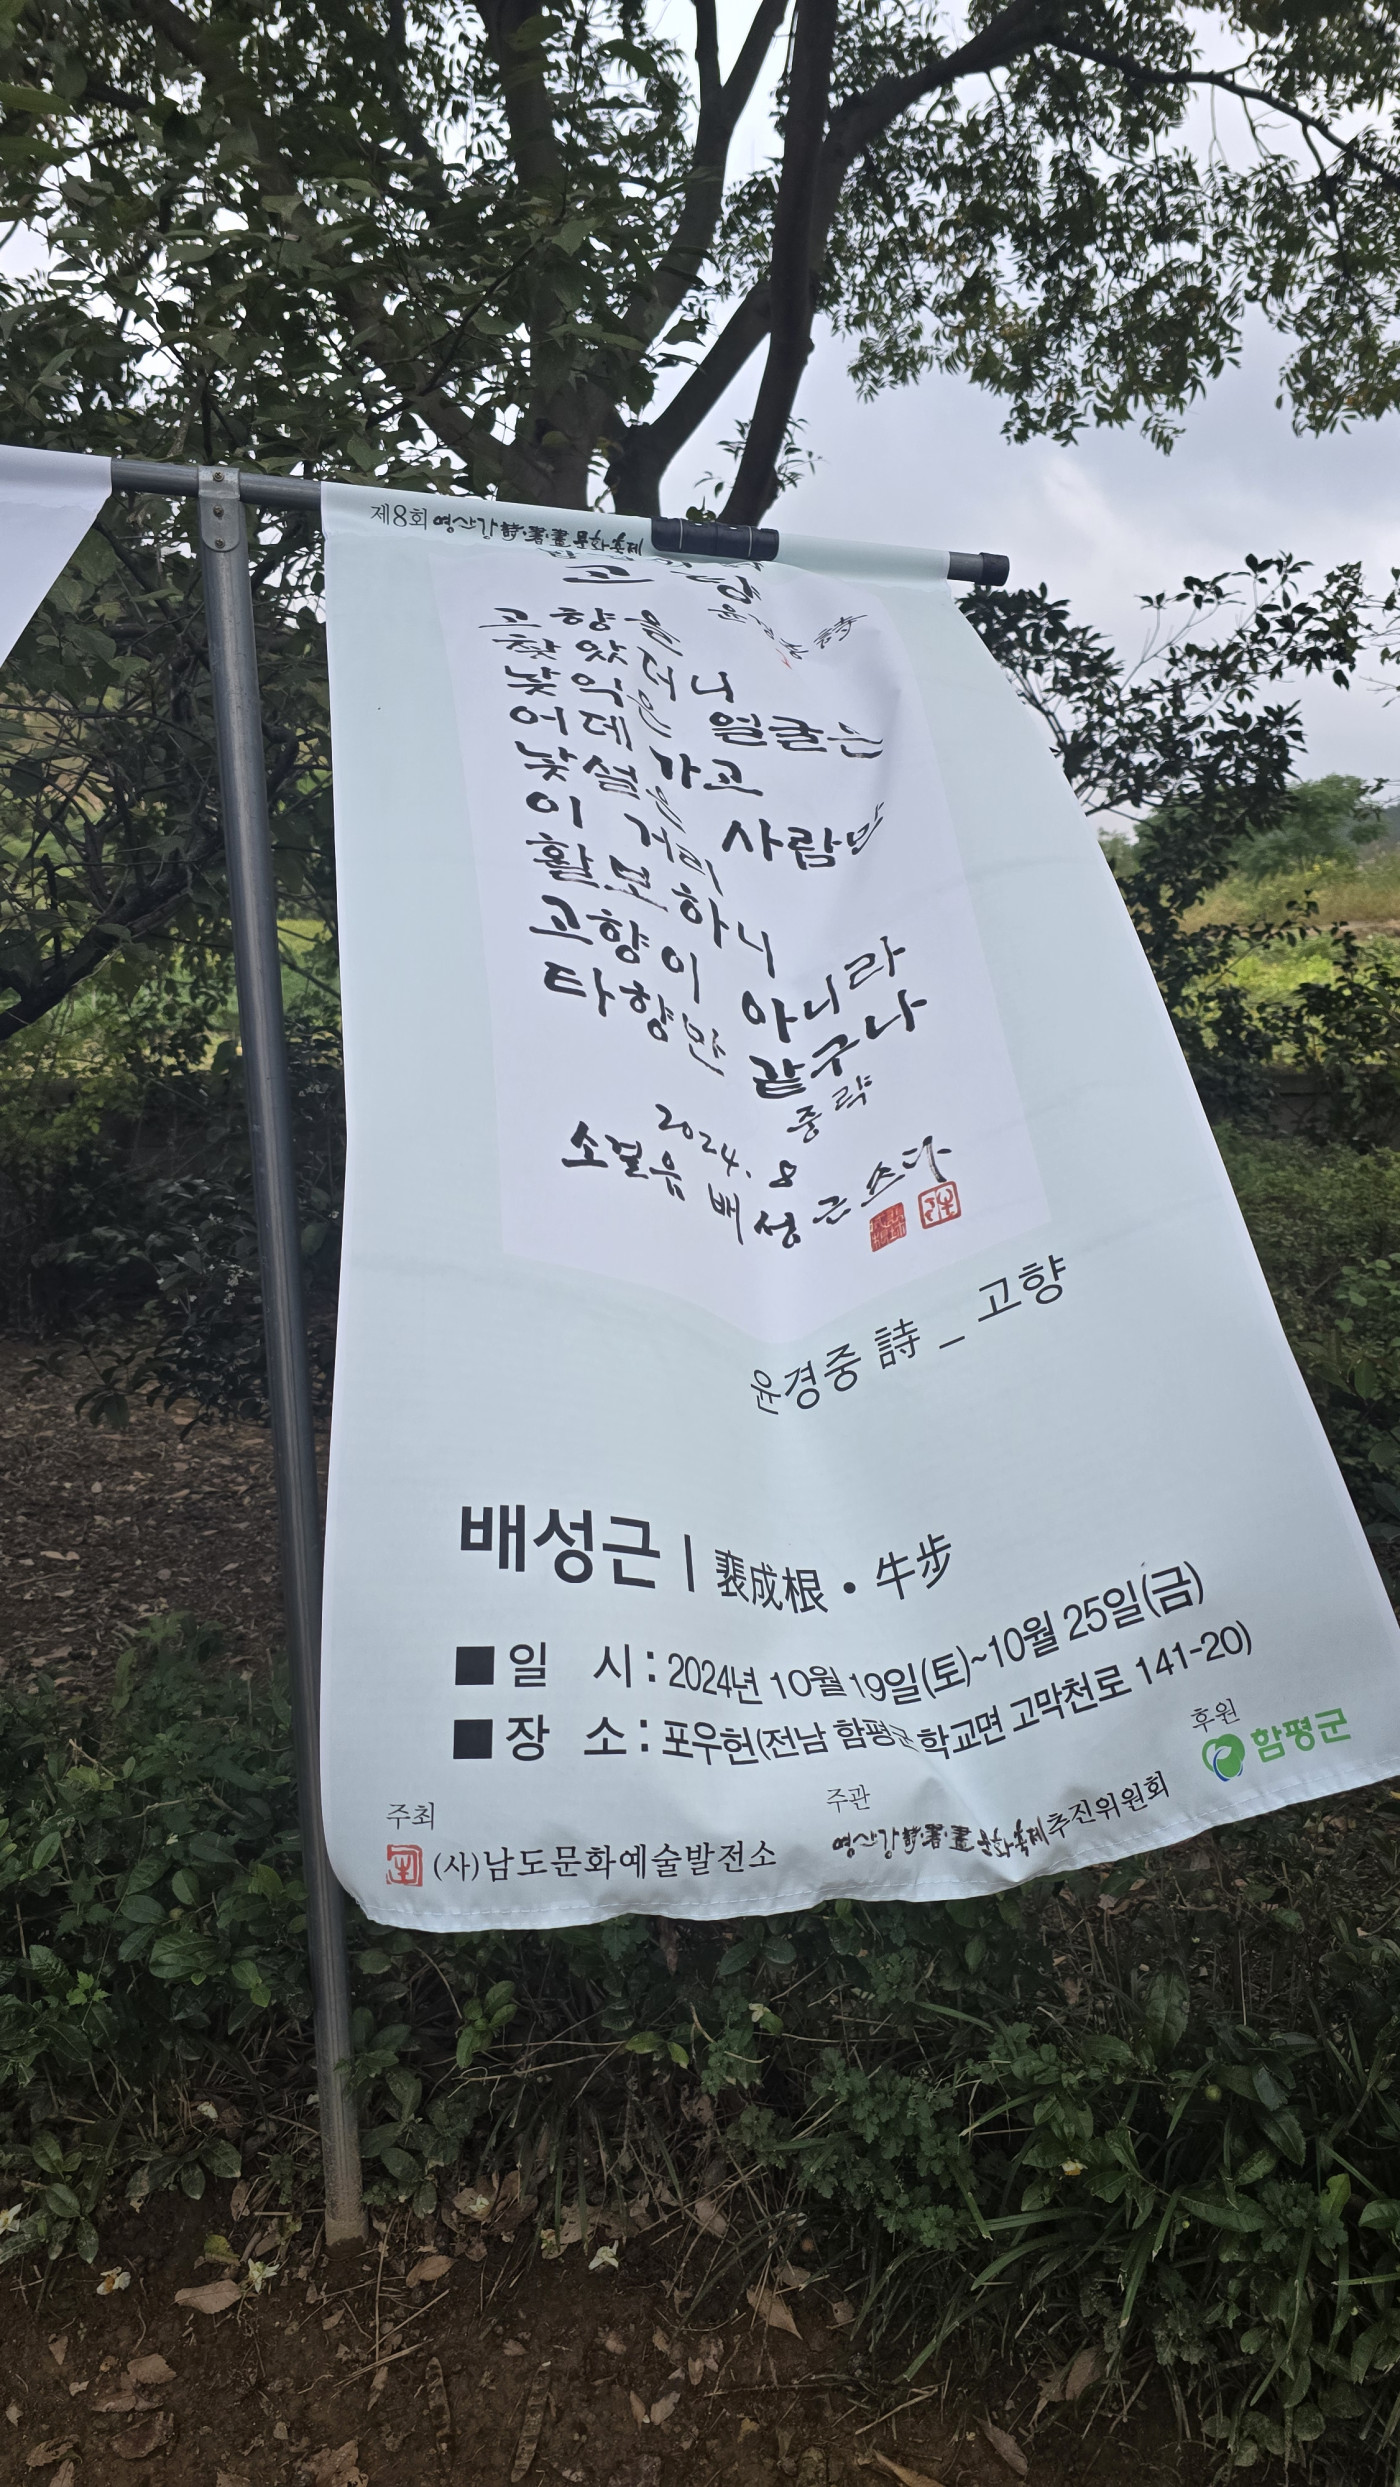 제8회 영산강 詩·書·畵 문화축제
고향
윤경중 詩
고향을
찾았더니
낯익은 얼굴은
어데 가고
낯설은 사람만
이 거리
활보하니
고향이 아니라
타향만 같구나
중략
2024. 8
소걸음 배성근 쓰다
윤경중 詩 _ 고향
배성근 | 裵成根 • 牛步
■ 일 시 : 2024년 10월 19일(토)~10월 25일(금)
■ 장 소 : 포우헌(전남 함평군 학교면 고막천로 141-20)
주최
(사)남도문화예술발전소
주관
영산강 詩·書·畵 문화축제추진위원회
후원
함평군